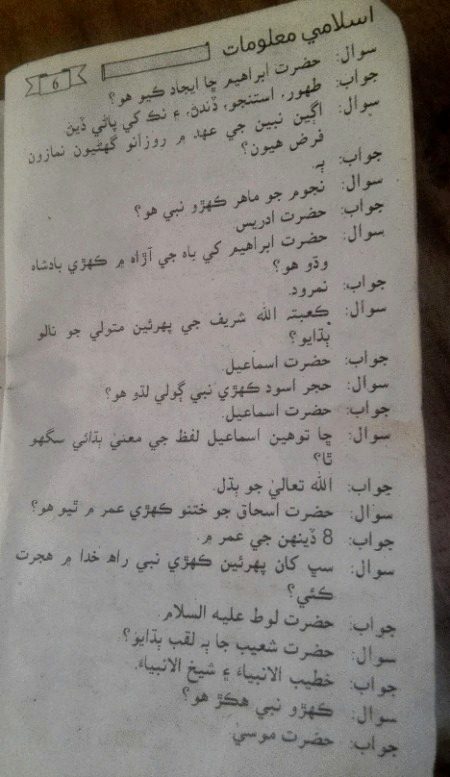 اسلامي معلومات
6
سوال: حضرت ابراهيم ڇا ايجاد ڪيو هو؟
جواب: طهور، استنجو، ڏندڻ، ۽ نڪ کي پاڻي ڏيڻ
سوال: اڳين نبين جي عهد ۾ روزانو گهڻيون نمازون
فرض هيون؟
جواب: ٻه
سوال: نجوم جو ماهر ڪهڙو نبي هو؟
جواب: حضرت ادريس
سوال: حضرت ابراهيم کي باه جي آڙاه ۾ ڪهڙي بادشاه
وڌو هو؟
جواب: نمرود.
سوال: ڪعبته الله شريف جي پهرئين متولي جو نالو
ٻڌايو؟
جواب: حضرت اسماعيل.
سوال: حجر اسود ڪهڙي نبي ڳولي لڌو هو؟
جواب: حضرت اسماعيل.
سوال: ڇا توهين اسماعيل لفظ جي معنيٰ ٻڌائي سگهو
ٿا؟
جواب: الله تعاليٰ جو ٻڌل.
سوال: حضرت اسحاق جو ختنو ڪهڙي عمر ۾ ٿيو هو؟
جواب: 8 ڏينهن جي عمر ۾.
سوال: سڀ کان پهرئين ڪهڙي نبي راه خدا ۾ هجرت
ڪئي؟
جواب: حضرت لوط عليه السلام.
سوال: حضرت شعيب جا ٻه لقب ٻڌايو؟
جواب: خطيب الانبياءَ ۽ شيخ الانبياءَ.
سوال: ڪهڙو نبي هڪڙ هو؟
جواب: حضرت موسيٰ